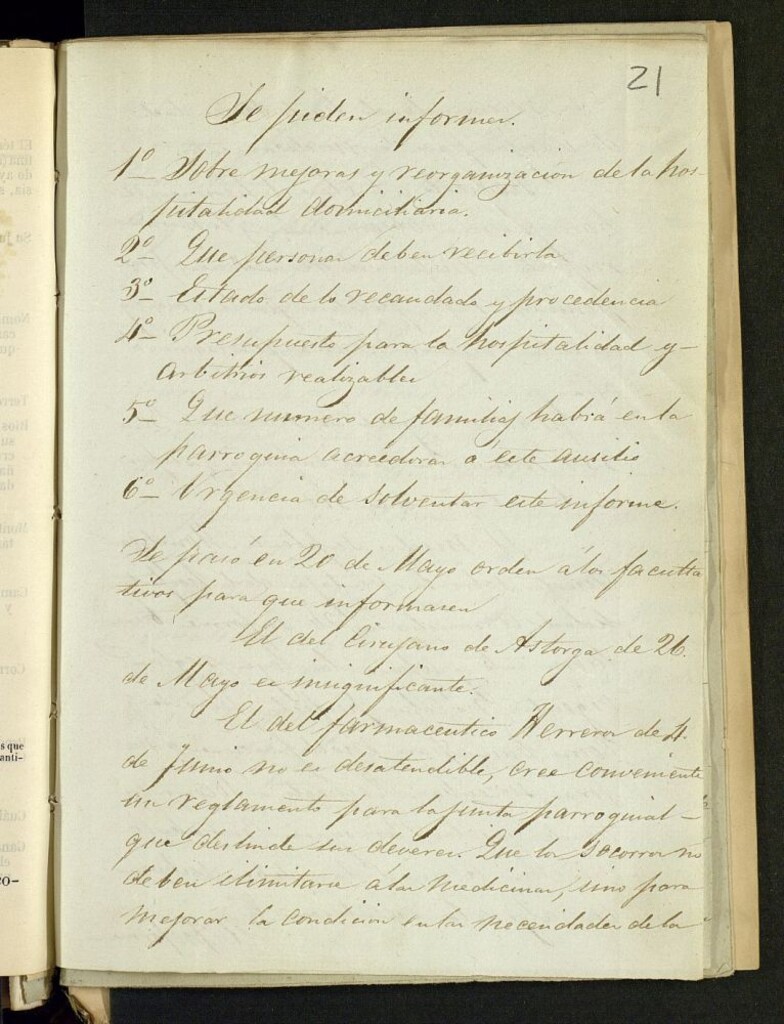 21
Se piden informes.
1º Sobre mejoras y reorganizacion de la hos-
pitalidad domiciliaria.
2º Que personas deben recibirla
3º Estado de lo recaudado y procedencia
4º Presupuesto para la hospitalidad y-
arbitrios realizables
5º Que numero de familias habrá en la
parroquia acreedoras á este ausilio
6º Urgencia de solventar este informe.
Se pasó en 20 de Mayo orden á los faculta
tivos para que informasen
El del Cirujano de Astorga de 26.
de Mayo es insignificante.
El del farmaceutico Herreros de 4.
de Junio no es desatendible, cree conveniente
un reglamento para la junta parroquial-
que deslinde sus deveres. Que los socorros no
deben limitarse á las medicinas, sino para
mejorar la condicion en las necesidades de la
s que
anti-